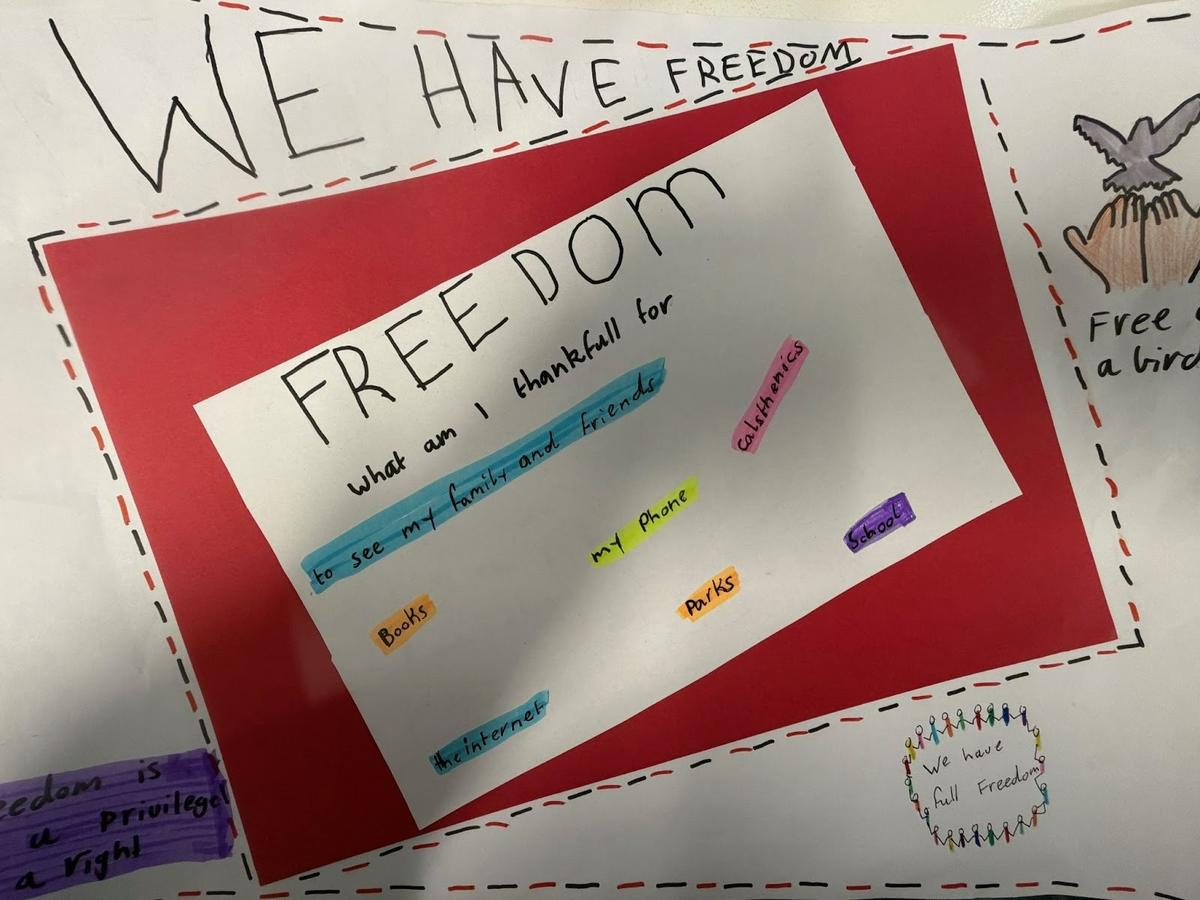 WE HAVE FREEDOM
FREEDOM
what am I thankfull for
to see my family and friends
calsthenics
my Phone
School
Books
Parks
the internet
Free
a bird
We have
full Freedom
is
a privilege
a right